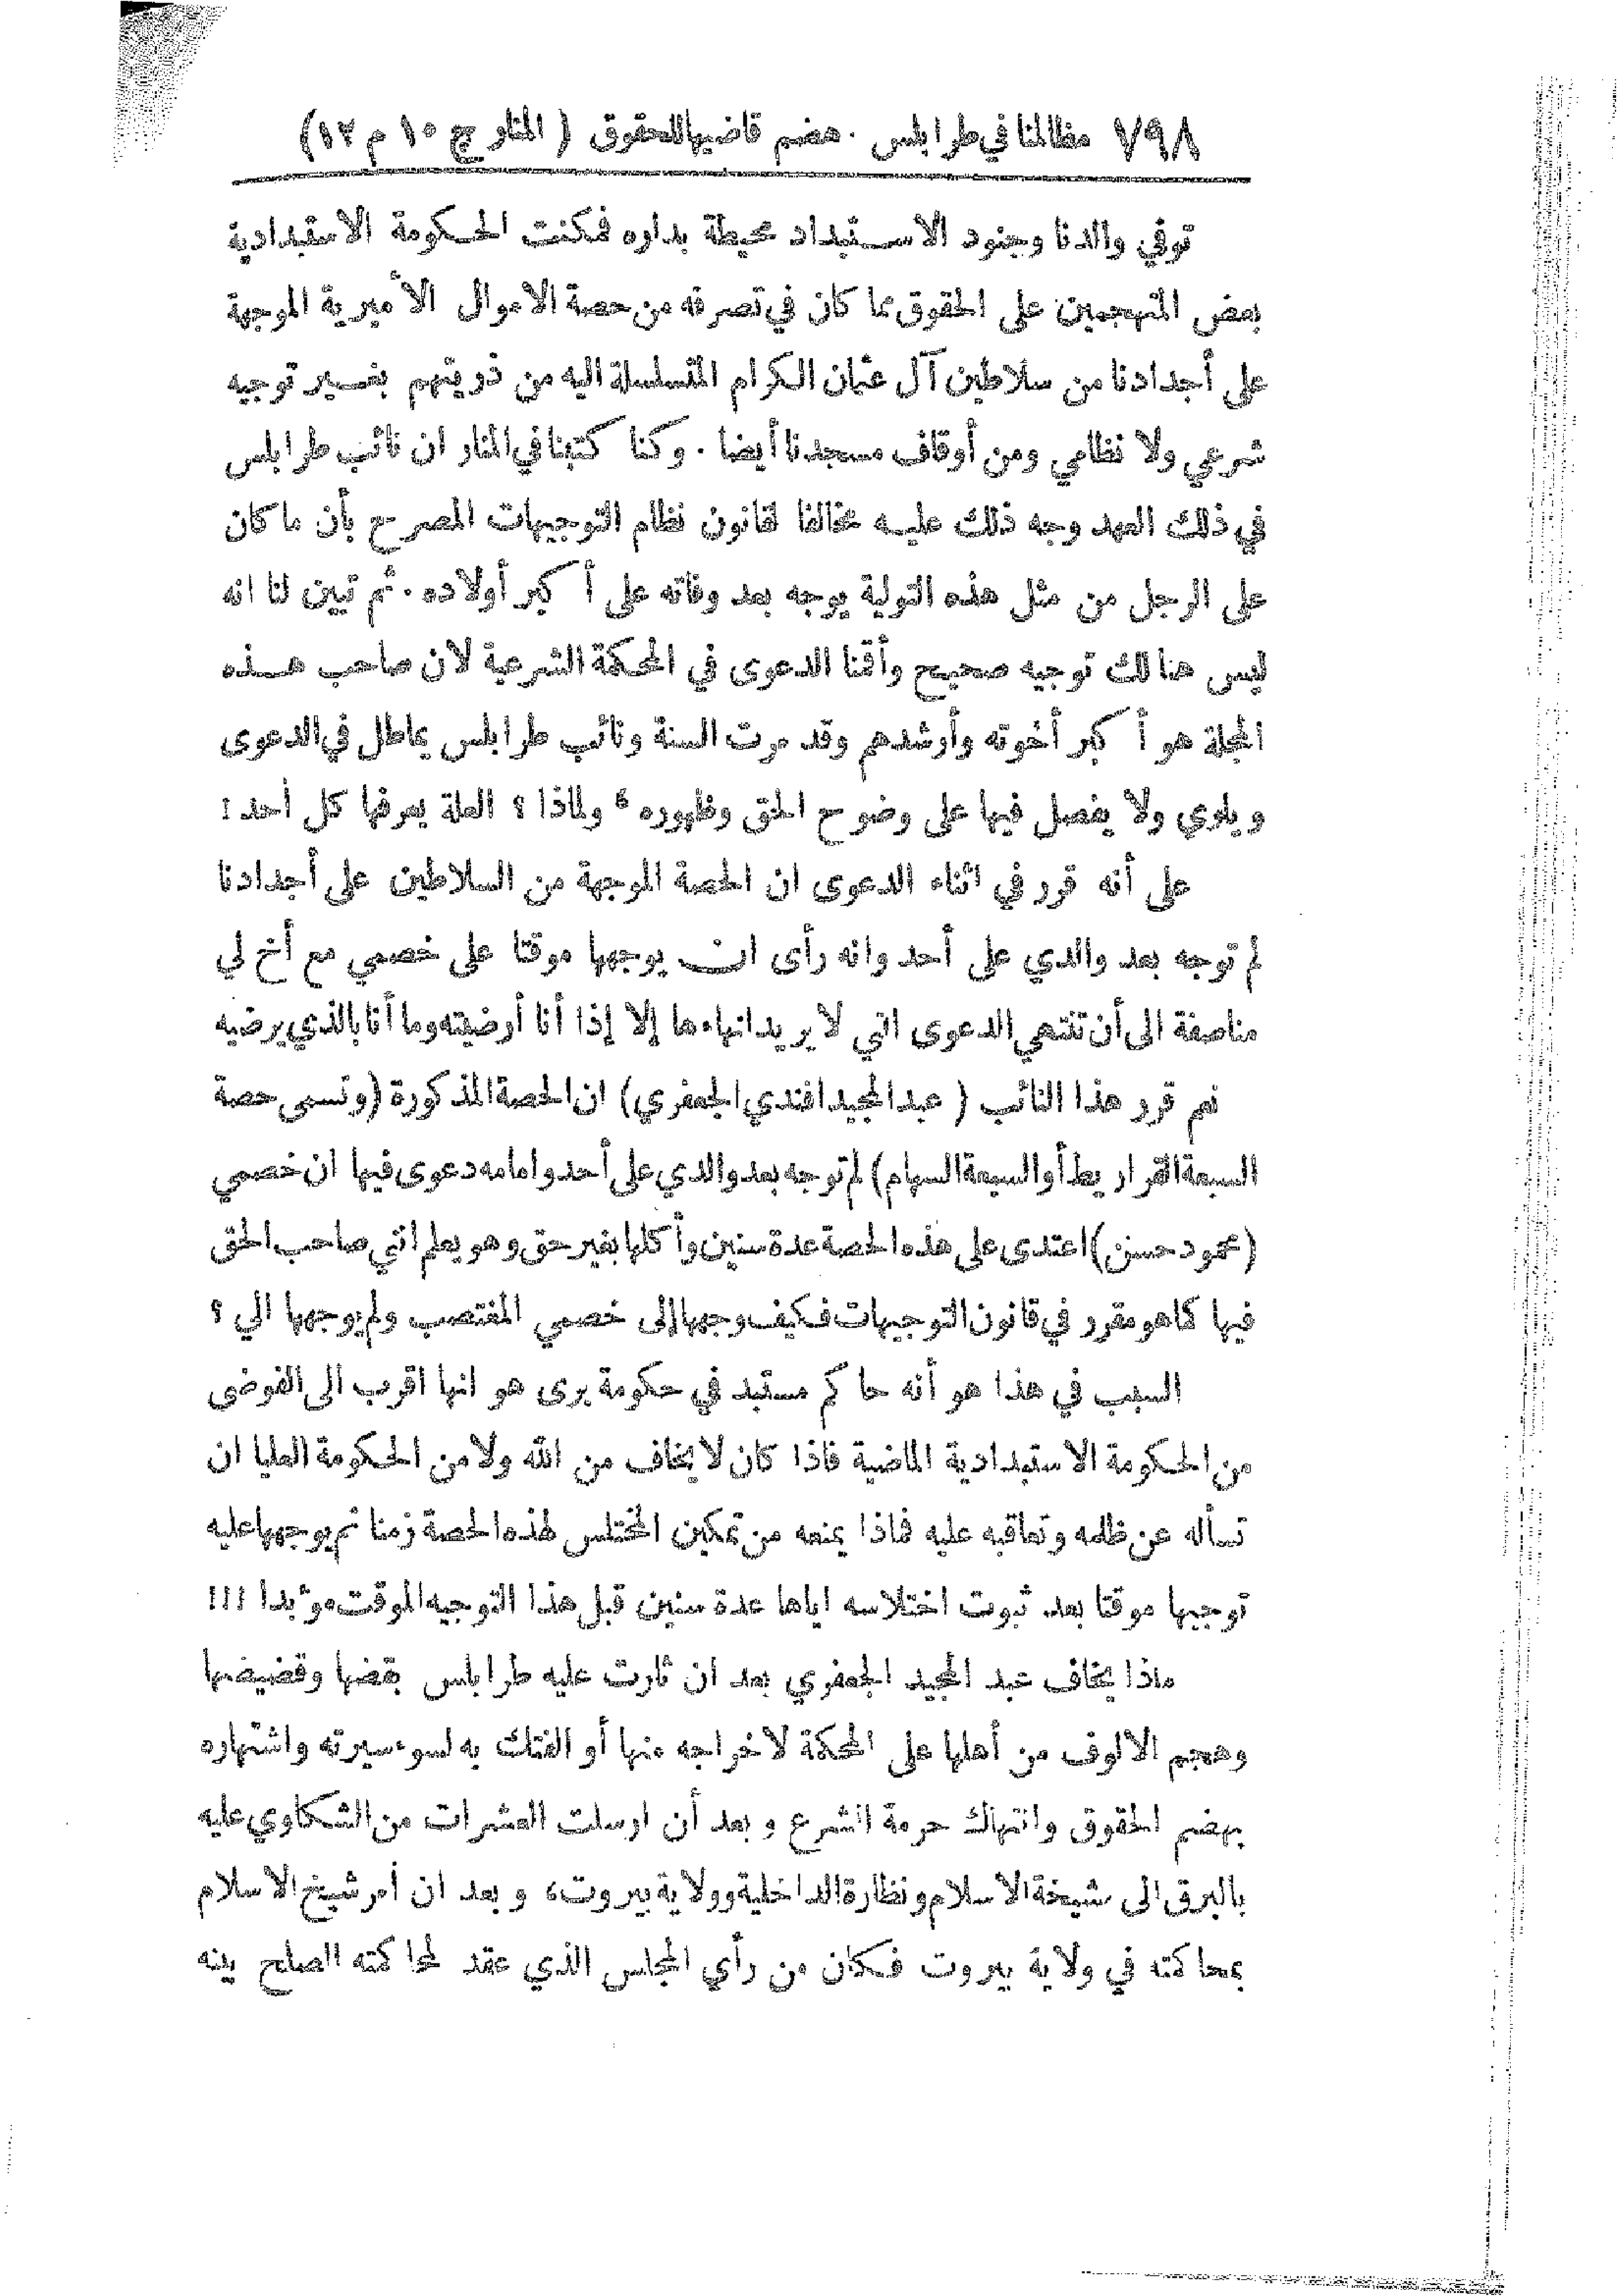 ٧٩٨ مظالمنا في طرابلس . هضم قاضيها للحقوق ( المنار ج ١٠ م ١٢)
توفي والدنا وجنود الاستبداد محيطة بداره فمكنت الحكومة الاستبدادية
بعض المتهجمين على الحقوق مما كان في تصرفه من حصة الاموال الأميرية الموجهة
على أجدادنا من سلاطين آل عثمان الكرام المتسلسلة اليه من ذريتهم بغير توجيه
شرعي ولا نظامي ومن أوقاف مسجدنا أيضا . وكنا كتبنا في المنار ان نائب طرابلس
في ذلك العهد وجه ذلك عليه مخالفا لقانون نظام التوجيهات المصرح بأن ما كان
على الرجل من مثل هذه التولية يوجه بعد وفاته على أكبر أولاده . ثم تبين لنا انه
ليس هنالك توجيه صحيح وأقنا الدعوى في المحكمة الشرعية لان صاحب هذه
المجلة هو أكبر أخوته وأرشدهم وقد مرت السنة ونائب طرابلس يماطل في الدعوى
ويلوي ولا يفصل فيها على وضوح الحق وظهوره ، ولماذا ؟ العلة يعرفها كل أحد !
على أنه قرر في اثناء الدعوى ان الحصة الموجهة من السلاطين على أجدادنا
لم توجه بعد والدي على أحد وانه رأى ان يوجهها موقتا على خصمي مع أخ لي
مناصفة الى أن تنتهي الدعوى التي لا يريد انهاءها إلا إذا أنا أرضيته وما أنا بالذي يرضيه
نعم قرر هذا النائب ( عبد المجيد افندي الجعفري) ان الحصة المذكورة (وتسمى حصة
السبعة القراريط أو السبعة السهام) لم توجه بعد والدي على أحد وامامه دعوى فيها ان خصمي
(محمود حسن) اعتدى على هذه الحصة عدة سنين وأكلها بغير حق وهو يعلم انني صاحب الحق
فيها كما هو مقرر في قانون التوجيهات فكيف وجهها إلى خصمي المغتصب ولم يوجهها الي ؟
السبب في هذا هو أنه حاكم مستبد في حكومة يرى هو انها اقرب الى الفوضى
من الحكومة الاستبدادية الماضية فاذا كان لا يخاف من الله ولا من الحكومة العليا ان
تسأله عن ظلمه وتعاقبه عليه فماذا يمنعه من تمكين المختلس لهذه الحصة زمنا ثم يوجهها عليه
توجيها موقتا بعد ثبوت اختلاسه اياها عدة سنين قبل هذا التوجيه الموقت مؤبدا !!!
ماذا يخاف عبد المجيد الجعفري بعد ان ثارت عليه طرابلس بقضها وقضيضها
وهجم الالوف من أهلها على المحكمة لاخراجه منها أو الفتك به لسوء سيرته واشتهاره
بهضم الحقوق وانتهاك حرمة الشرع وبعد أن ارسلت العشرات من الشكاوي عليه
بالبرق الى مشيخة الاسلام ونظارة الداخلية وولاية بيروت، وبعد ان أمر شيخ الاسلام
بمحاكمته في ولاية بيروت فكان من رأي المجلس الذي عقد لمحاكمته الصلح بينه